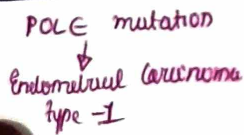 POLE mutation
↓
Endometrial Carcinoma
type -1